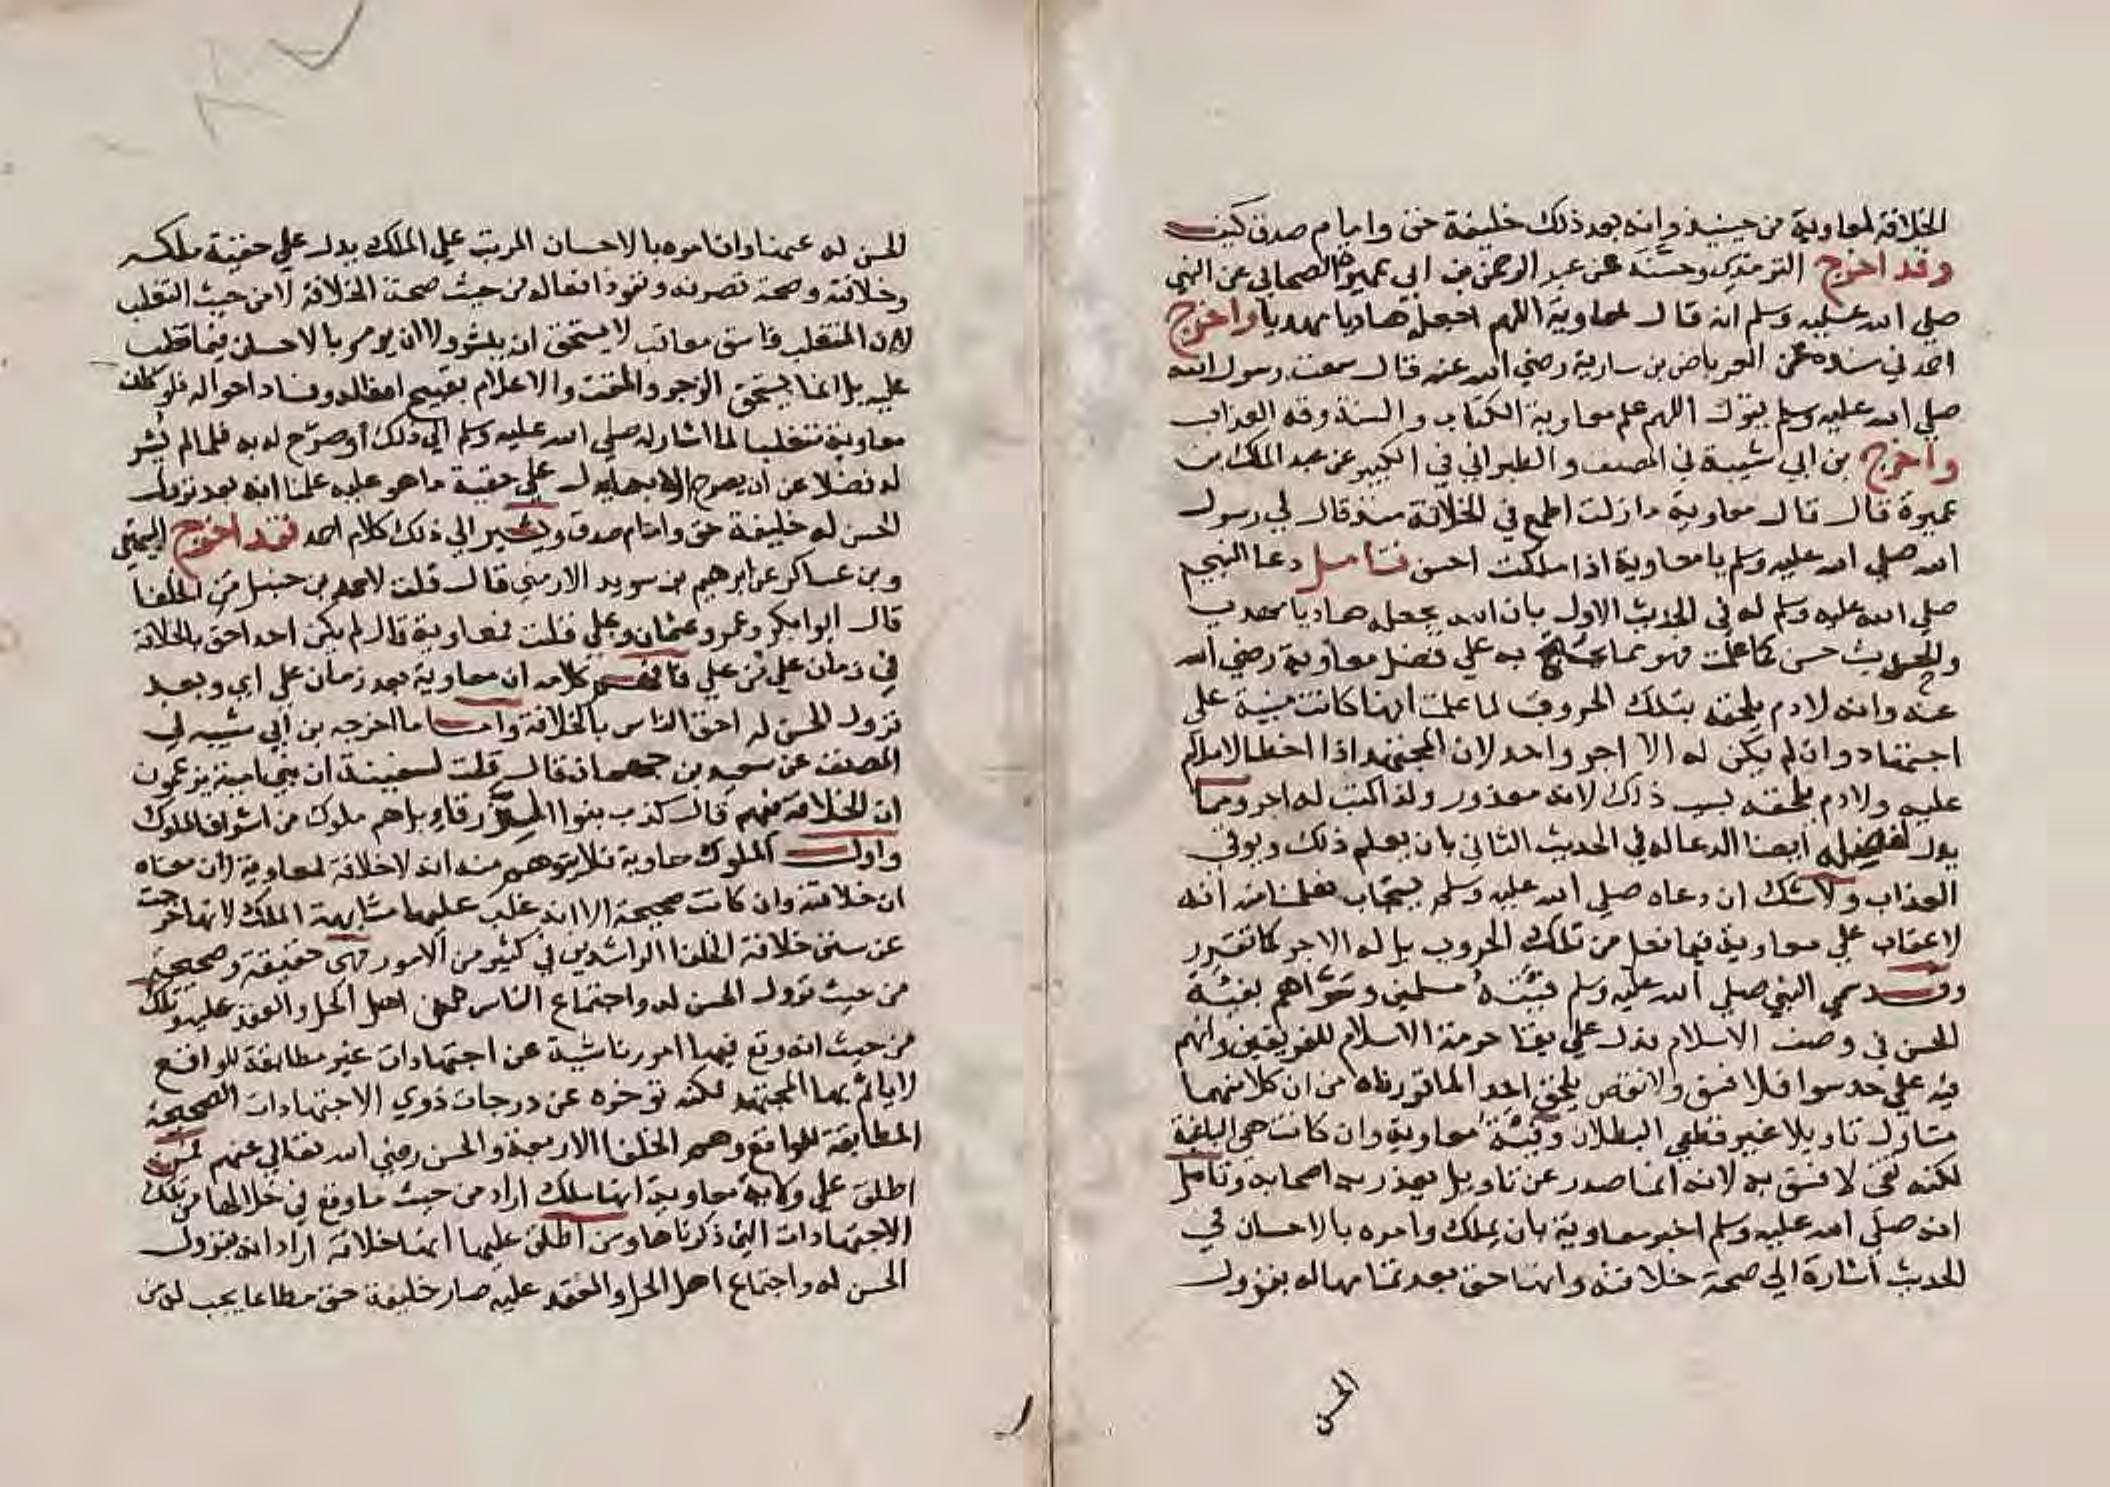 الخلافة لمعاوية من حينيذ وانه بعد ذلك خليفة حق وامام صدق كيف
وقد اخرج الترمذي وحسنه عن عبد الرحمن بن ابي عميرة الصحابي عن النبي
صلي الله عليه وسلم انه قال لمعاوية اللهم اجعله هاديا مهديا واخرج
احمد في مسنده عن العرباض بن سارية رضي الله عنه قال سمعت رسول الله
صلي الله عليه وسلم يقول اللهم علم معاوية الكتاب والسنة وقه العذاب
واخرج بن ابي شيبة في المصنف والطبراني في الكبير عن عبد الملك بن
عميرة قال قال معاوية مازلت اطمع في الخلافة منذ قال لي رسول
الله صلي الله عليه وسلم يا معاوية اذا ملكت احسن فتأمل دعا النبي
صلي الله عليه وسلم له في الحديث الاول بان الله يجعله هاديا مهديا
والحديث حسن كما علمت فهو مما يحتج به علي فضل معاوية رضي الله
عنه وانه لا دم يلحقه بتلك الحروب لما علمت انها كانت مبنية علي
اجتهاد وان لم يكن له الا اجر واحد لان المجتهد اذا اخطا لا ملام
عليه ولا دم يلحقه بسبب ذلك لانه معذور ولذا كتب له اجر ومما
يدل لفضله ايضا الدعا له في الحديث الثاني بان يعلم ذلك ويوقي
العذاب ولا شك ان دعاه صلي الله عليه وسلم يستجاب فعلمنا منه انه
لا عقاب علي معاوية فيما فعل من تلك الحروب بل له الاجر كما تقرر
وقد سمي النبي صلي الله عليه وسلم فيته مسلمين وسواهم بفيئة
الحسن في وصف الاسلام فدل علي بقا حرمة الاسلام للفريقين وانهم
فيه علي حد سوا فلا فسق ولا نقص يلحق احد لما قررناه من ان كلا منهما
متاول تاويلا غير قطعي البطلان وفئة معاوية وان كانت هي البلغية
لكنه بغي لا فسق به لانه انما صدر عن تاويل يعذر به اصحابه وتامل
انه صلي الله عليه وسلم اخبر معاوية بان يملك وامره بالاحسان في
الحديث اشارة الي صحة خلافته وانها حق بعد تمامها له بنزول
الحسن
الحسن له عنها وان امره بالاحسان المرتب علي الملك يدل علي حقية ملكه
وخلافته وصحة تصرفه ونفوذ افعاله من حيث صحة الخلافة لا من حيث التغلب
لان المتغلب فاسق معاقب لا يستحق ان يبشر ولا ان يومر بالاحسان فيما تغلب
عليه بل انما يستحق الزجر والمقت والاعلام بقبيح افعاله وفساد احواله فلو كان
معاوية متغلبا لما اشار له صلي الله عليه وسلم الي ذلك او صرح له به فلما لم يشر
له فضلا عن ان يصرح الا بما يدل علي حقية ما هو عليه علمنا انه بعد نزول
الحسن له خليفة حق وامام صدق ويشير الي ذلك كلام احمد فقد اخرج البيهقي
وبن عساكر عن ابرهيم بن سويد الارمني قال قلت لاحمد بن حنبل من الخلفا
قال ابوا بكر وعمر وعثمان وعلي قلت فمعاوية قال لم يكن احد احق بالخلافة
في زمان علي من علي فافهم كلامه ان معاوية بعد زمان علي اي وبعد
نزول الحسن له احق الناس بالخلافة واما ما اخرجه بن ابي شيبه في
المصنف عن سعيد بن جمهان قال قلت لسفينة ان بني امية يزعمون
ان الخلافة فيهم قال كذب بنوا الزرقاء بل هم ملوك من اشر الملوك
واول الملوك معاوية فلا يتوهم منه انه لا خلافة لمعاوية لان معناه
ان خلافته وان كانت صحيحة الا انه غلب عليها مشابهة الملك لانها خرجت
عن سنن خلافة الخلفا الراشدين في كثير من الامور فهي حقيقة وصحيحة
من حيث نزول الحسن له واجتماع الناس اهل الحل والعقد عليه وتلك
من حيث انه وقع فيها امور ناشية عن اجتهادات غير مطابقة للواقع
لا ياثم بها المجتهد لكنه توخره عن درجات ذوي الاجتهادات الصحيحة
المطابقة للواقع وهم الخلفا الاربعة والحسن رضي الله تعالي عنهم فمن
اطلق علي ولاية معاوية انها ملك اراد من حيث ما وقع في خلالها من تلك
الاجتهادات التي ذكرناها ومن اطلق عليها انها خلافة اراد انه بنزول
الحسن له واجتماع اهل الحل والعقد عليه صار خليفة حق مطاعا يجب له من